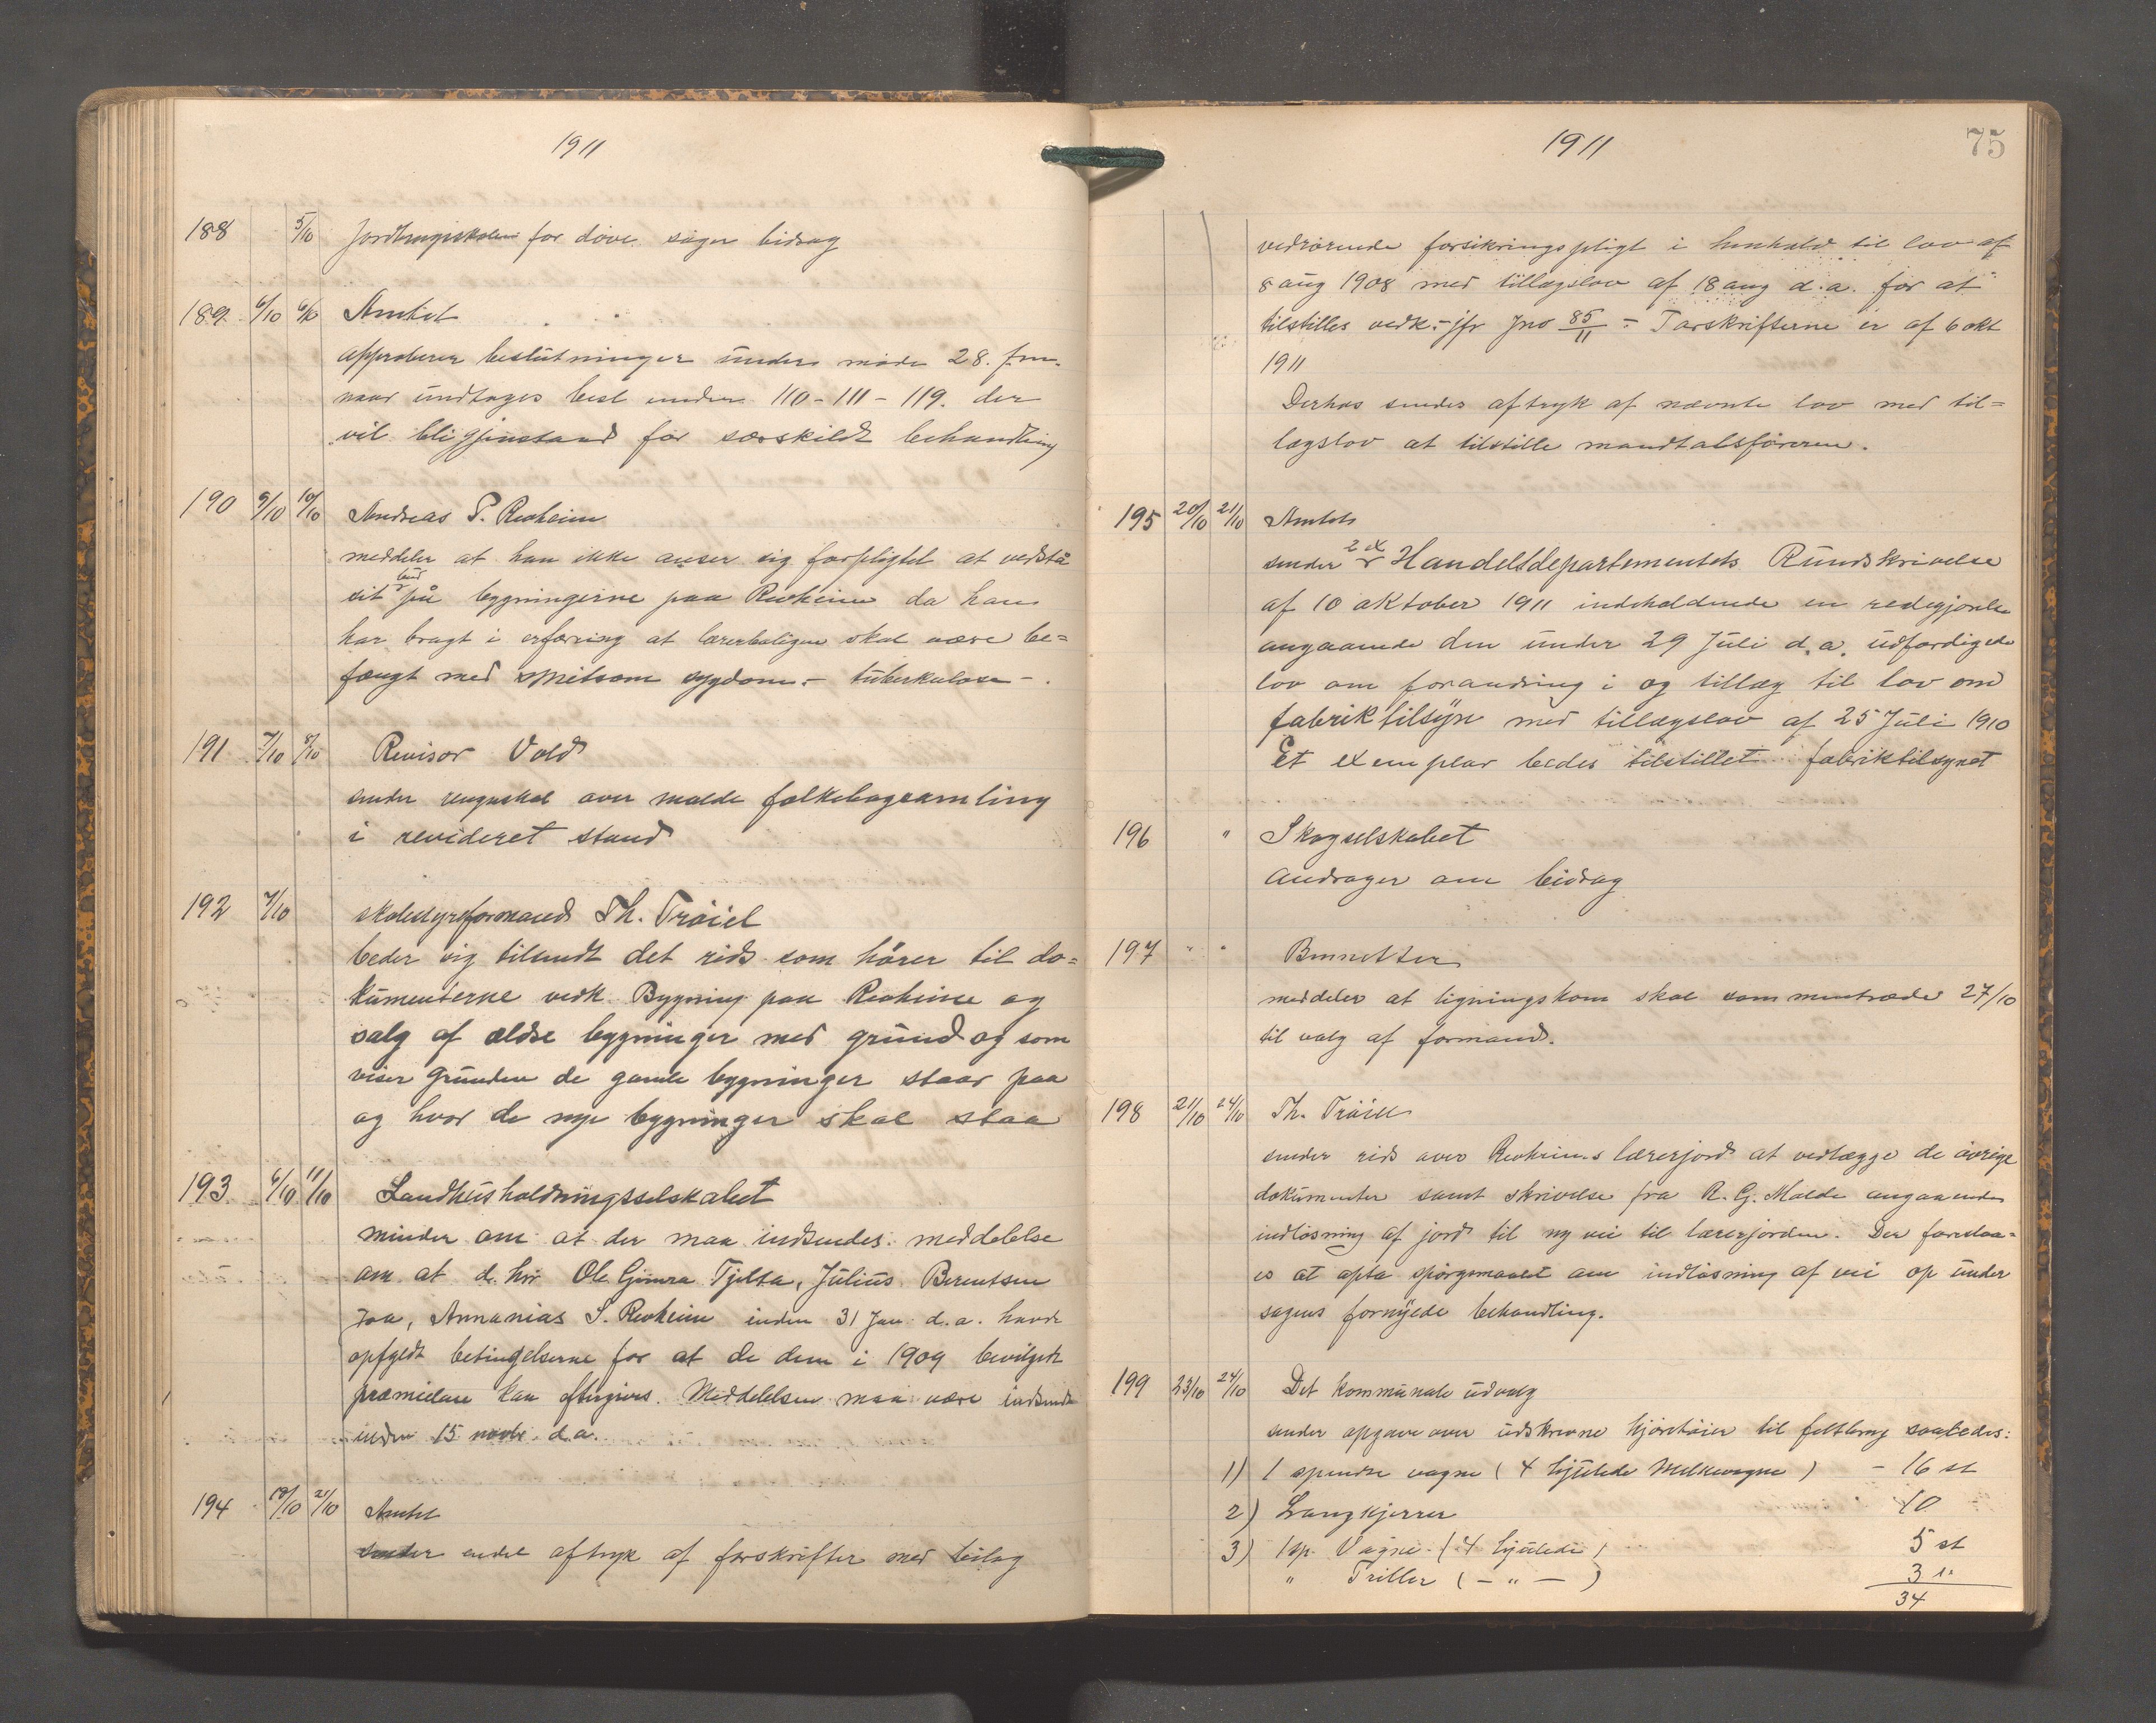 1911
188 5/10 Jordbrugsskolen for døve søger bidrag
189 6/10 6/10 Amtet
approberer beslutninger under møde 28. f.m.
naar undtages besl under 110 - 111 - 119. der
vil bli gjenstand for særskildt behandling
190 9/10 10/10 Andreas P. Revheim
meddeler at han ikke anser sig forpligtet at vedstå
sit bud på bygningerne paa Revheim da han
har bragt i erfaring at lærerboligen skal være be=
fængt med smitsom sygdom - tuberkulose -.
191 7/10 8/10 Revisor Vold
sender regnskab over malde folkebogsamling
i revideret stand
192 7/10 skolestyreformand Th. Trøiel
beder sig tilsendt det rids som hører til do=
kumenterne vedk. Bygning paa Revheim og
salg af ældre bygninger med grund og som
viser grunden de gamle bygninger staar paa
og hvor de nye bygninger skal staa
193 6/10 11/10 Landhusholdningsselskabet
minder om at der maa indsendes meddelelse
om at d. hrr Ole Gimra Tjelta, Julius Berentsen
Joa, Annanias S. Revheim inden 31 Jan d.a. havde
opfyldt betingelserne for at de dem i 1909 bevilgede
præmielaan kan eftergives. Meddelelsen maa være indsendt
inden 15 novbr. d.a.
194 19/10 21/10 Amtet
sender endel aftryk af forskrifter med bilag
1911
75
vedrørende forsikringspligt i henhold til lov af
8 aug 1908 med tillægslov af 18 aug d.a. for at
tilstilles vedk. - jfr Jno 85/11 - Forskrifterne er af 6 okt
1911
Derhos sendes aftryk af nævnte lov med til=
lægslov at tilstille mandtalsføreren.
195 20/10 21/10 Amtet
sender 2 ex Handelsdepartementets Rundskrivelse
af 10 oktober 1911 indeholdende en redegjørelse
angaaende den under 29 Juli d.a. udfærdigede
lov om forandring i og tillæg til lov om
fabriktilsyn med tillægslov af 25 Juli 1910
Et exemplar bedes tilstillet fabriktilsynet
196 " Skogselskabet
andrager om bidrag
197 " " Bennetter
meddeler at ligningskom skal sammentræde 27/10
til valg af formand.
198 21/10 24/10 Th. Trøiel
sender rids over Revheims lærerjord at vedlægge de øvrige
dokumenter samt skrivelse fra R. G. Malde angaaende
indløsning af jord til ny vei til lærerjorden. Der foreslaa=
es at opta spørgsmaalet om indløsning af vei op under
sagens fornyede behandling.
199 23/10 24/10 Det kommunale udvalg
sender opgave over udskrevne kjøretøier til feltbrug saaledes:
1) 1 spendte vogne (4 hjulede Melkevogne) - 16 st
2) Langkjerrer 10
3) 1 sp. Vogne - (4 hjulede) 5 st
" Triller ( - " - ) 3 "
34